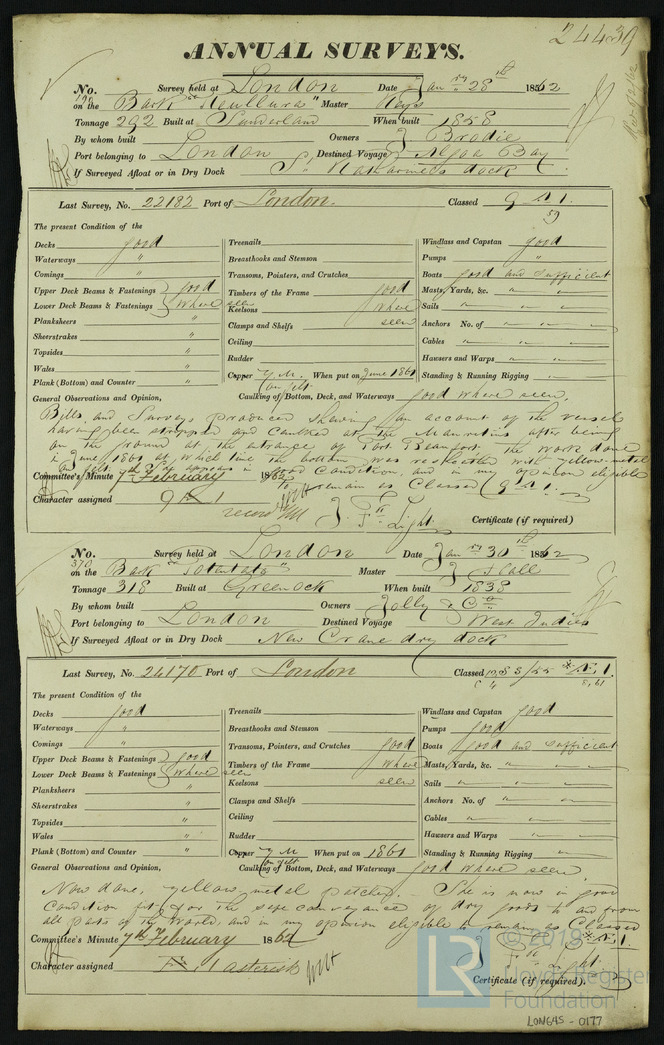 24439
ANNUAL SURVEYS.
No. Survey held at London Date Jan ry 28 th 1862
on the Bark "Neullura" Master Keys
Tonnage 292 Built at Sunderland When built 1858
By whom built Owners J Brodie
Port belonging to London Destined Voyage Algoa Bay
If Surveyed Afloat or in Dry Dock St Katharines dock
Last Survey, No. 22182 Port of London. Classed 9 A 1.
59
The present Condition of the
Decks good Treenails Windlass and Capstan good
Waterways " Breasthooks and Stemson Pumps "
Comings " Transoms, Pointers, and Crutches Boats good and sufficient
Upper Deck Beams & Fastenings good Timbers of the Frame good Masts, Yards, &c. " "
Lower Deck Beams & Fastenings where seen Keelsons where Sails " " "
Planksheers " Clamps and Shelfs seen Anchors No. of " " "
Sheerstrakes " Ceiling Cables " " "
Topsides " Rudder Hawsers and Warps " " "
Wales " Copper Y.M. When put on June 1861 Standing & Running Rigging " "
on felt
Plank (Bottom) and Counter " Caulking of Bottom, Deck, and Waterways good where seen.
General Observations and Opinion,
Bills and Surveys produced shewing an account of the vessel
having been stripped and caulked at the Mauritius after being
on the ground at the entrance of Port Beaufort, the work done
in June 1861 at which time the bottom was resheathed with yellow metal
on felt. She appears in good condition, and in my opinion eligible
to remain as Classed (9 A 1.
Committee's Minute 7th February 1862
Character assigned 9 A 1
record
J. F. Light
Certificate (if required)
No. Survey held at London Date Jan ry 30 th 1862
370
on the Bark "Potentate" Master J Hall
Tonnage 318 Built at Greenock When built 1838
By whom built Owners Jolly & Co
Port belonging to London Destined Voyage West Indies
If Surveyed Afloat or in Dry Dock New Crane dry dock
Last Survey, No. 24170 Port of London Classed
The present Condition of the
Decks good Treenails Windlass and Capstan good
Waterways " Breasthooks and Stemson Pumps good
Comings " Transoms, Pointers, and Crutches good Boats good and sufficient
Upper Deck Beams & Fastenings good Timbers of the Frame where Masts, Yards, &c. " "
Lower Deck Beams & Fastenings where seen Keelsons seen Sails " " "
Planksheers " Clamps and Shelfs Anchors No. of " " "
Sheerstrakes " Ceiling Cables " " "
Topsides " Rudder Hawsers and Warps " " "
Wales " Copper Y M When put on 1861 Standing & Running Rigging "
on felt
Plank (Bottom) and Counter " Caulking of Bottom, Deck, and Waterways good where seen
General Observations and Opinion,
Now done, yellow metal patched. She is now in good
Condition fit for the safe conveyance of dry goods to and from
all parts of the World, and in my opinion eligible to remain as Classed
Committee's Minute 7th February 1862
Character assigned 1 asterisk
J. F. Light.
Certificate (if required).
© 2019
Lloyd's Register
Foundation
LON645-0177